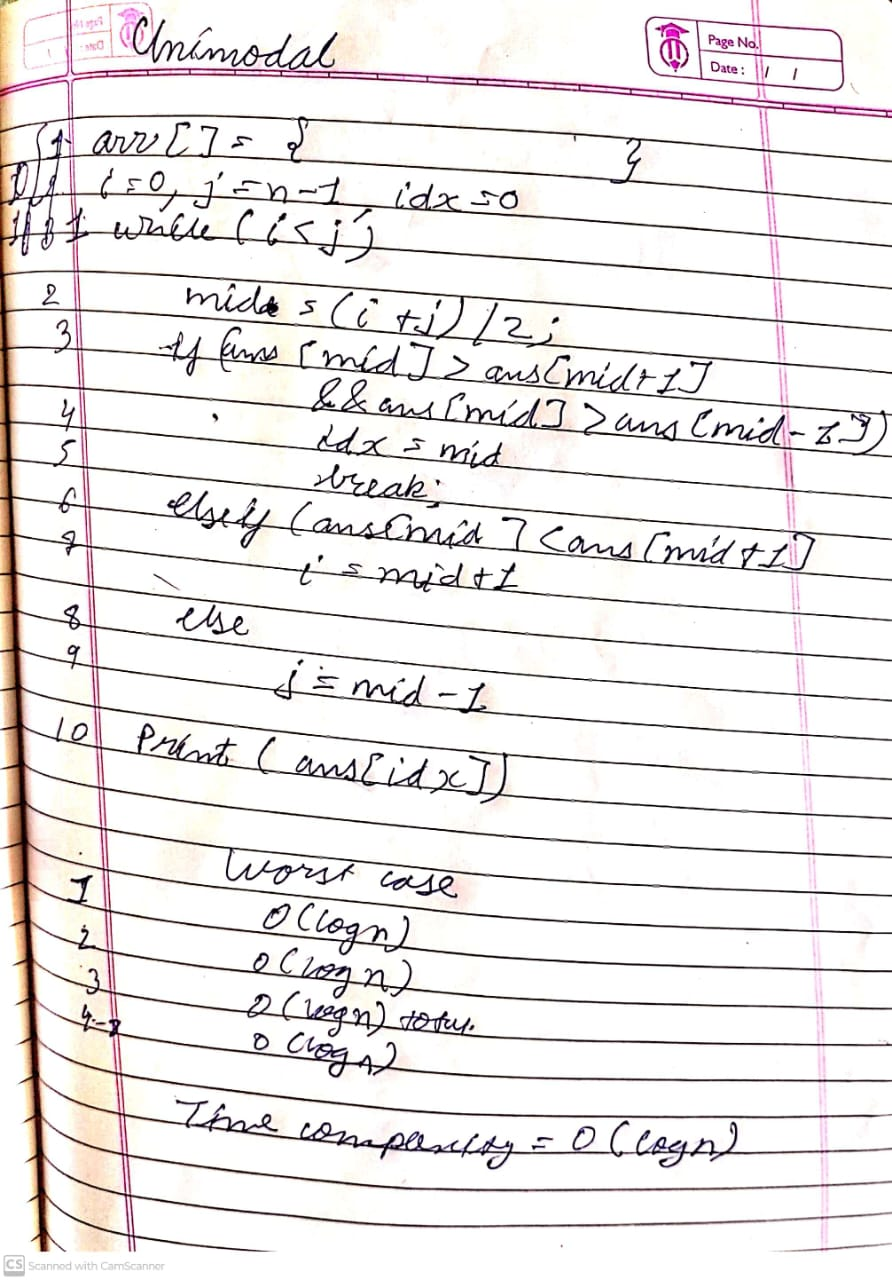 Unimodal
Page No.
Date: / /
1 arr[] = { }
i=0, j=n-1, idx=0
1 while (i<j)
2 mid = (i+j)/2;
3 if (ans[mid] > ans[mid+1]
&& ans[mid] > ans[mid-1])
4 idx = mid
5 break;
6 elseif (ans[mid] < ans[mid+1]
7 i = mid+1
8 else
9 j = mid-1
10 Print (ans[idx])
Worst case
1 O(logn)
2 O(logn)
3 O(logn)
4-8 O(logn)
Time complexity = O(logn)
CS Scanned with CamScanner